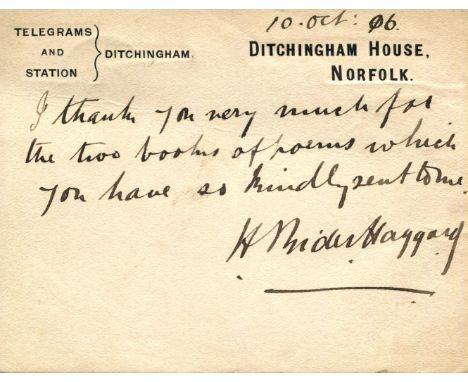 10. Oct: 06.
TELEGRAMS
AND
STATION
DITCHINGHAM.
DITCHINGHAM HOUSE,
NORFOLK.
I thank you very much for
the two books of poems which
you have so kindly sent to me
H Rider Haggard